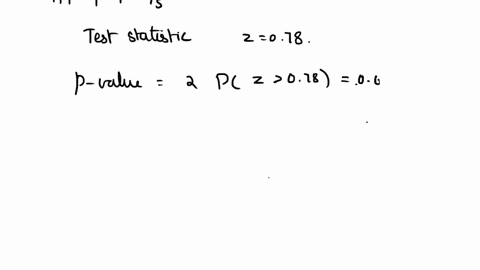 Test statistic z = 0.78.
p-value = 2 P( z > 0.78) = 0.0